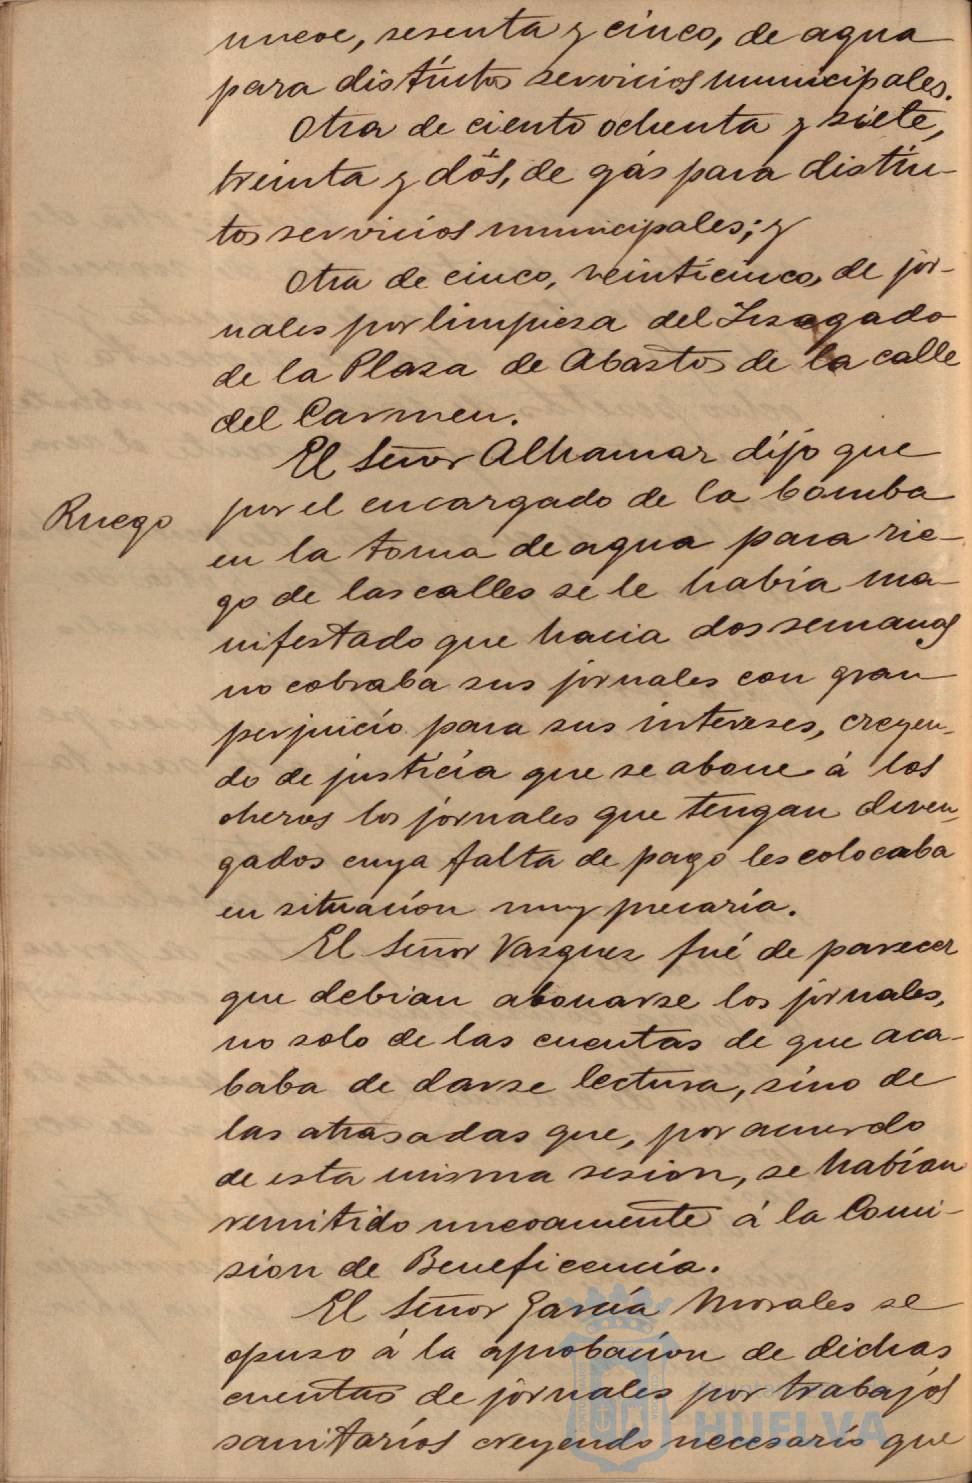 nueve, sesenta y cinco, de agua
para distíntos servicios municipales.
Otra de ciento ochenta y siete,
treinta y dós, de gás para distín-
tos servicios municipales; y
Otra de cinco, veinticinco, de jor-
nales por limpieza del Juzgado
de la Plaza de Abastos de la calle
del Carmen.
El Señor Alhamar dijo que
Ruego
por el encargado de la bomba
en la toma de agua para rie-
go de las calles se le había ma-
nifestado que hacia dos semanas
no cobraba sus jornales con gran
perjuicio para sus intereses, creyen-
do de justícia que se abone á los
obreros los jornales que tengan deven-
gados cuya falta de pago les colocaba
en situacíon muy precaría.
El Señor Vazquez fué de parecer
que debian abonarse los jornales,
no solo de las cuentas de que aca-
baba de darse lectura, síno de
las atrasadas que, por acuerdo
de esta misma sesion, se habían
remitido nuevamente á la Comi-
sion de Beneficencía.
El Señor García Morales se
opuso á la aprobacíon de dichas
cuentas de jornales por trabajos
sanitaríos creyendo necesarío que
Ayuntamiento de
HUELVA